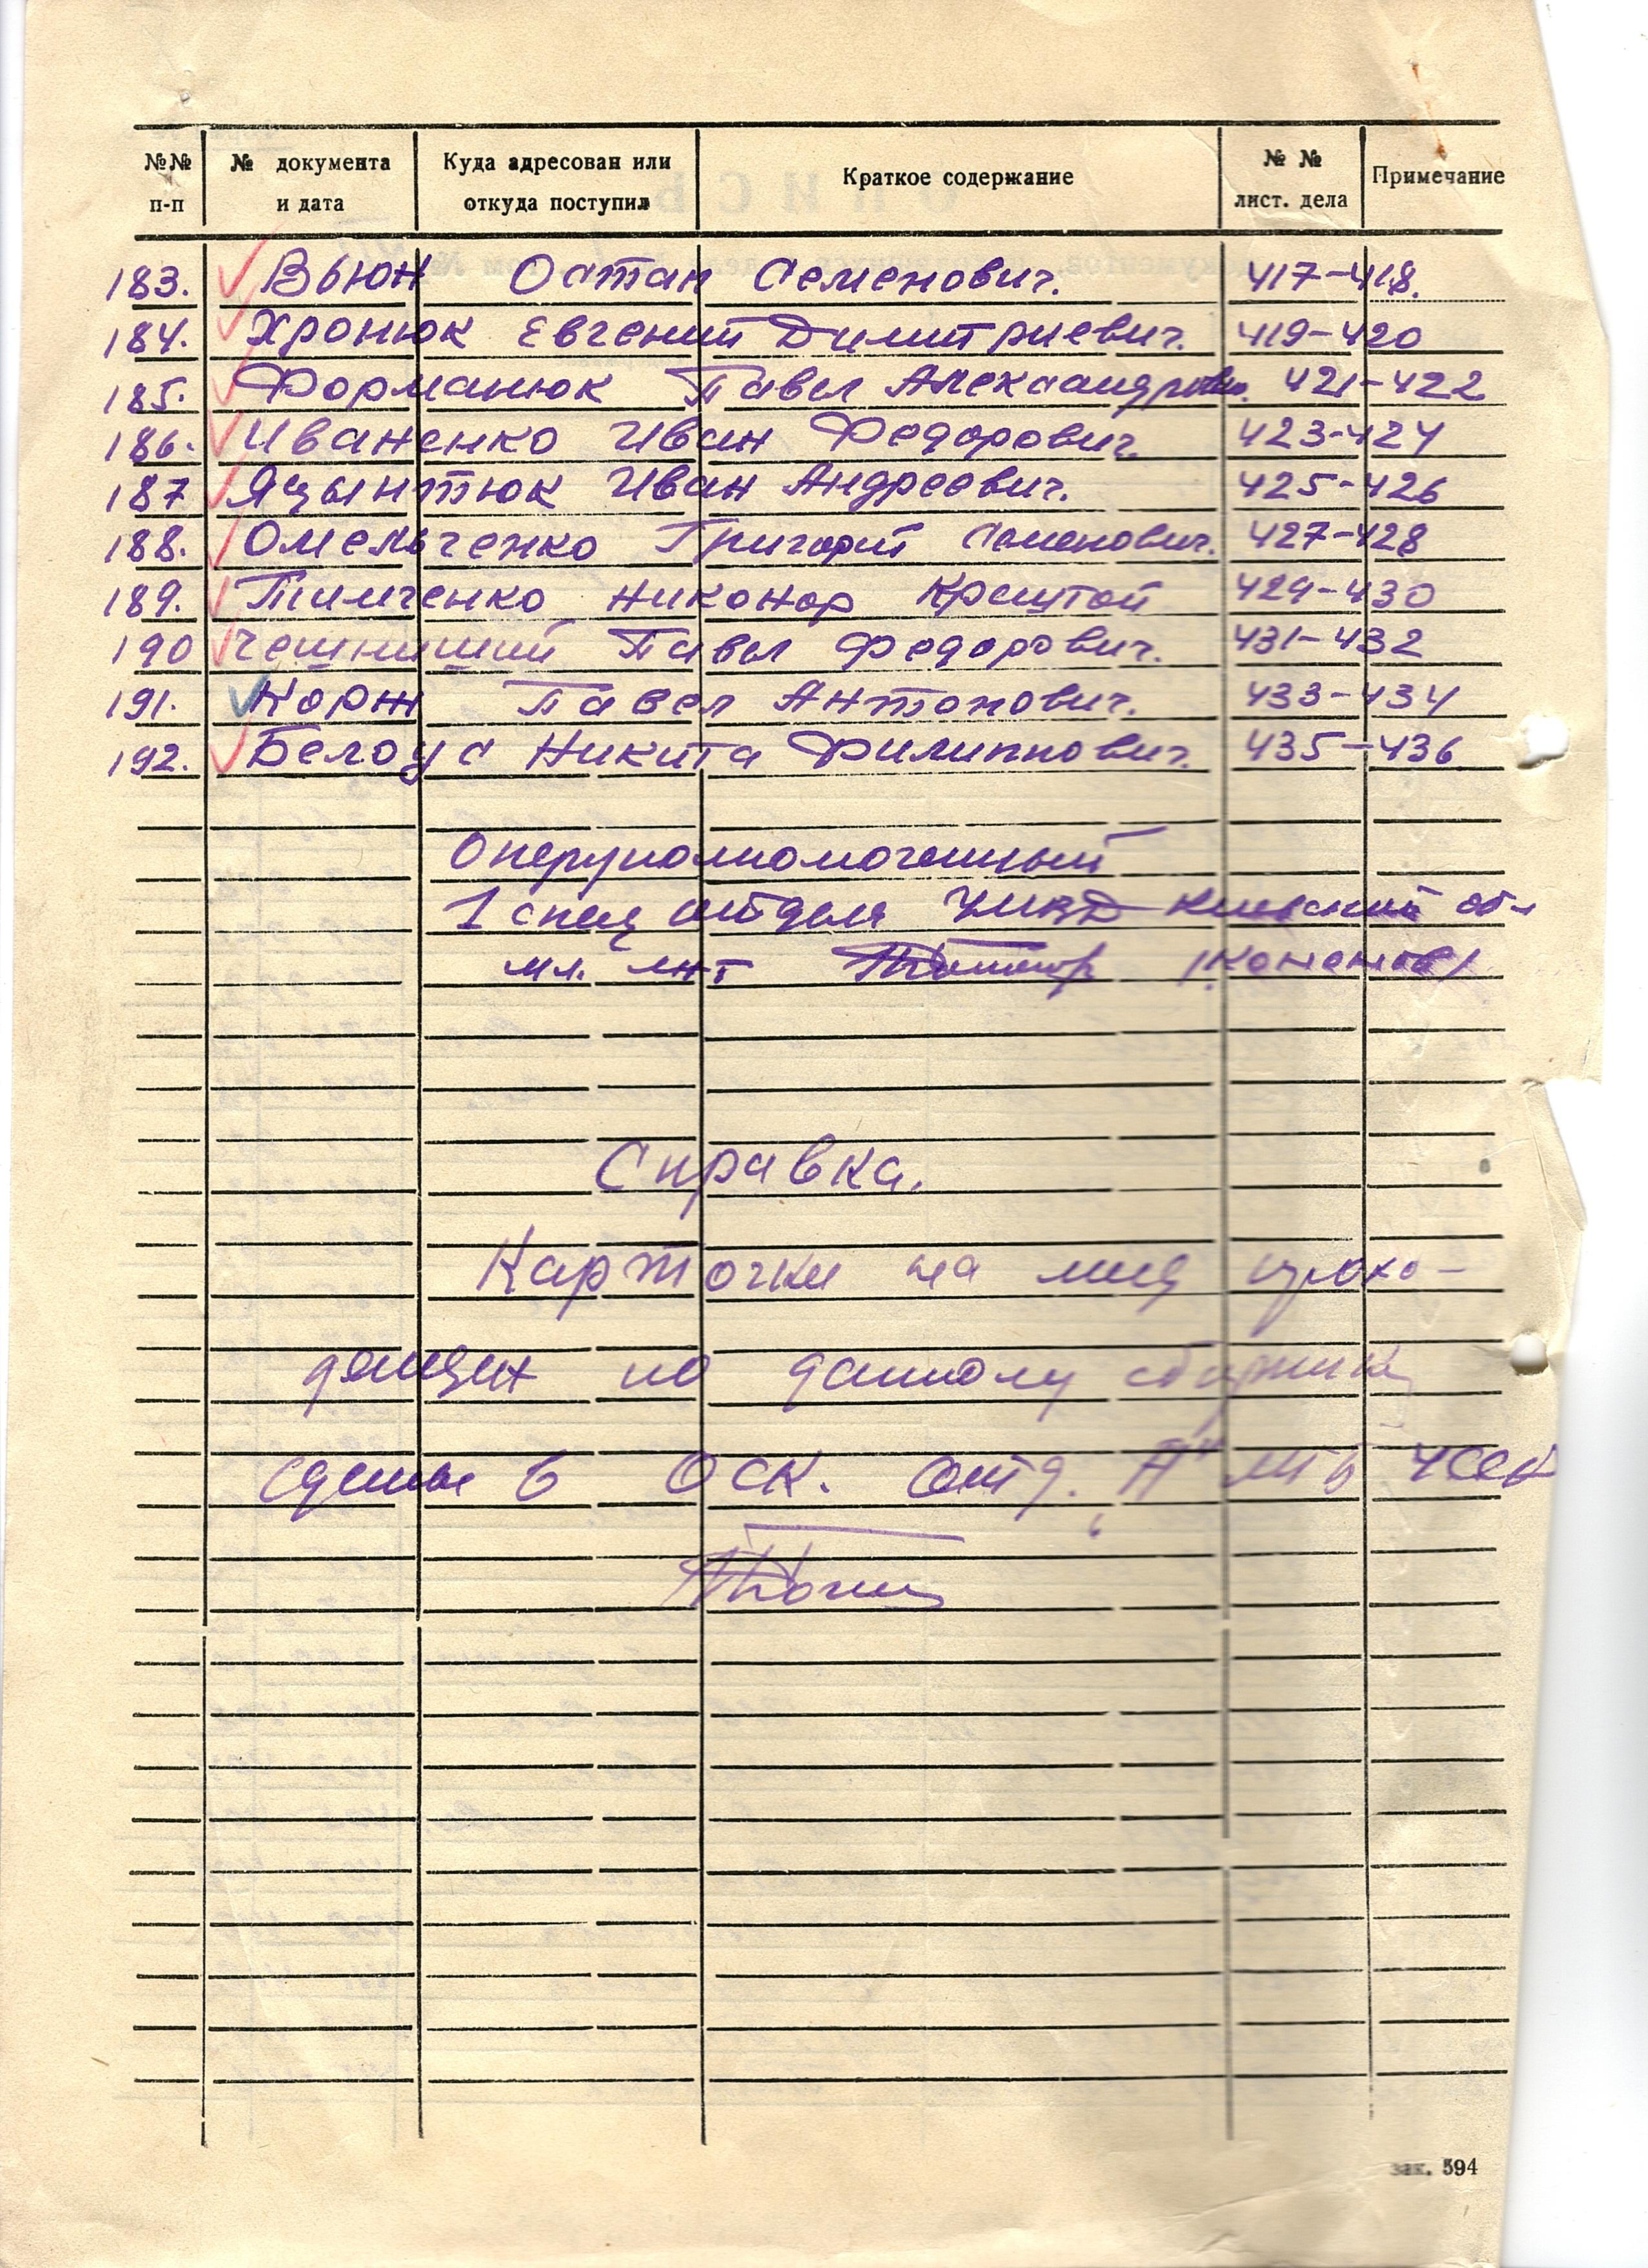 №№ п-п № документа и дата Куда адресован или откуда поступил Краткое содержание № № лист. дела Примечание
183. Вьюн Остап Семенович. 417-418.
184. Хронюк Евгений Димитриевич. 419-420
185. Форманюк Павел 421-422
186. Иваненко Иван Федорович. 423-424
187 Яцынтюк Иван Андреевич. 425-426
188. Омельченко Григорий Семенович. 427-428
189. Тимченко Никонор 429-430
190 Павел Федорович. 431-432
191. Корж Павел Антонович. 433-434
192. Белоус Никита Филиппович. 435-436
Оперуполномоченный
1 спец отдела Киевской обл
мл. лнт
Справка.
Карточки на лиц прохо-
дящих по данному сборнику
сданы в ОСК. отд. "А" МГБ УССР
зак. 594